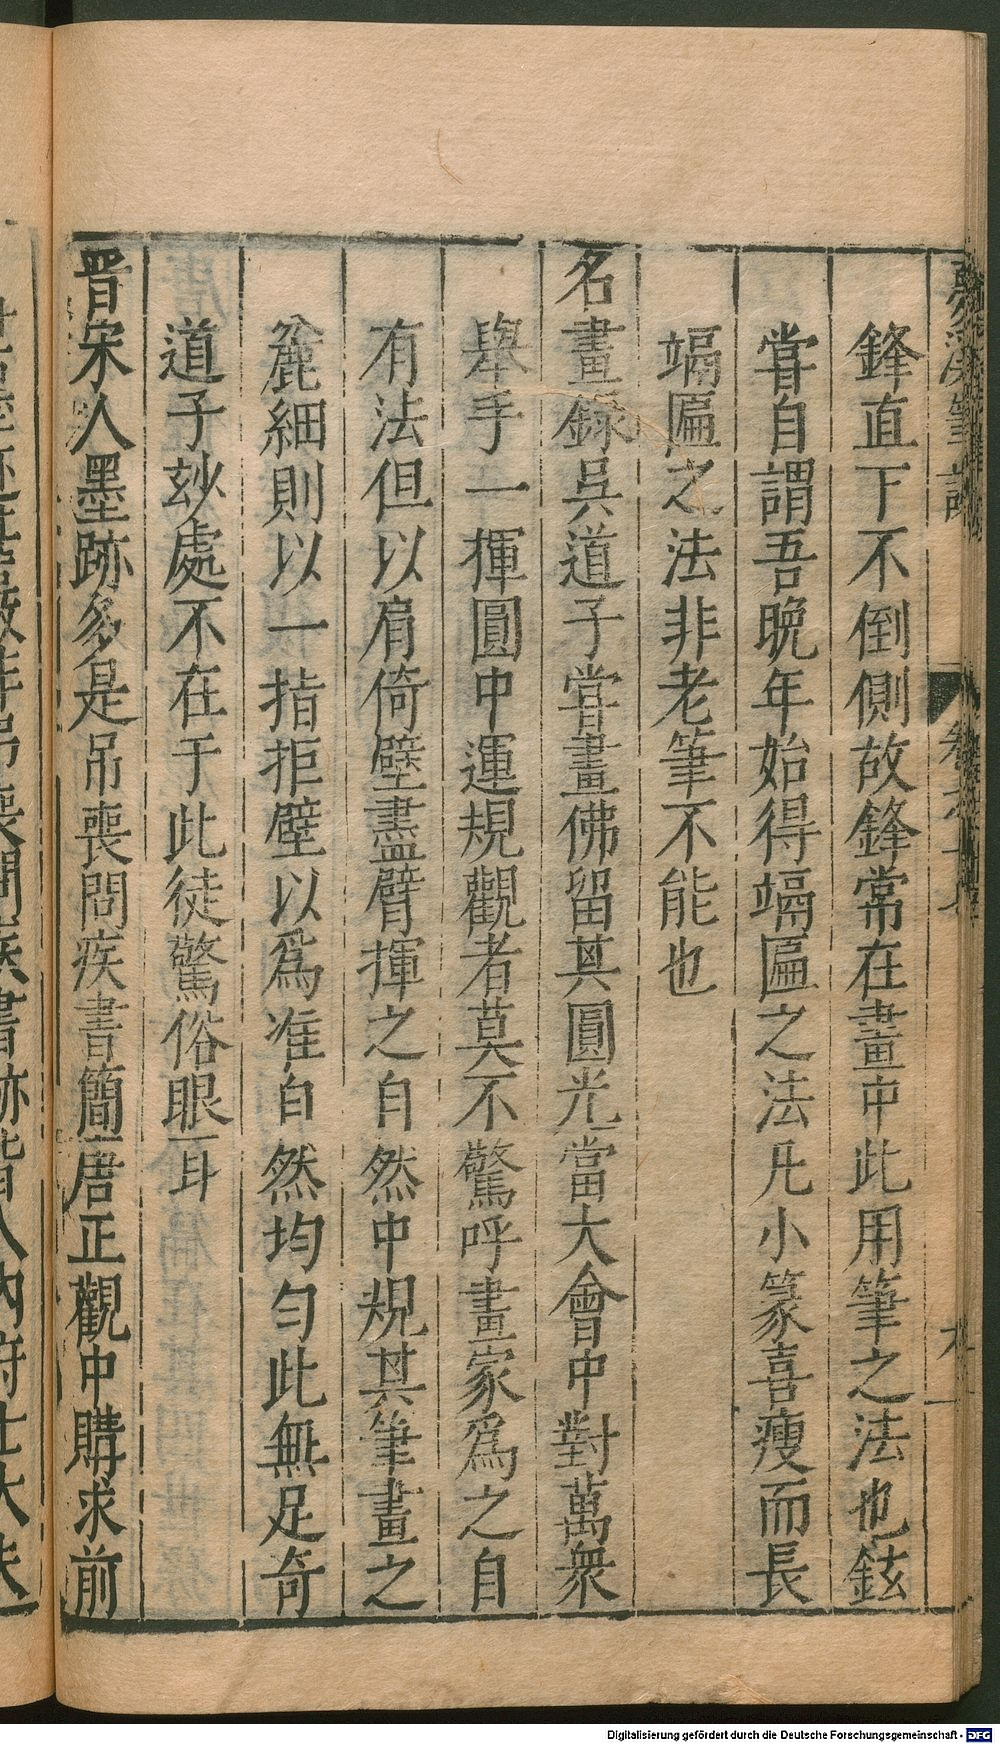 夢溪筆談
卷之十七
鋒直下不倒側故鋒常在畫中此用筆之法也鉉
甞自謂吾晩年始得𥻘匾之法凡小篆喜瘦而長
𥻘匾之法非老筆不能也
名畫錄吳道子甞畫佛留其圓光當大會中對萬衆
舉手一揮圓中運規觀者莫不驚呼畫家爲之自
有法但以肩倚壁盡臂揮之自然中規其筆畫之
麄細則以一指拒壁以爲准自然均勻此無足奇
道子玅處不在于此徒驚俗眼耳
晋宋人墨跡多是吊喪問疾書簡唐正觀中購求前
Digitalisierung gefördert durch die Deutsche Forschungsgemeinschaft - DFG